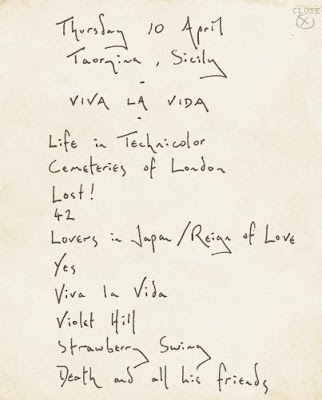 CLOSE
Thursday 10 April
Taormina, Sicily
-
VIVA LA VIDA
-
Life in Technicolor
Cemeteries of London
Lost!
42
Lovers in Japan/Reign of Love
Yes
Viva la Vida
Violet Hill
Strawberry Swing
Death and all his friends